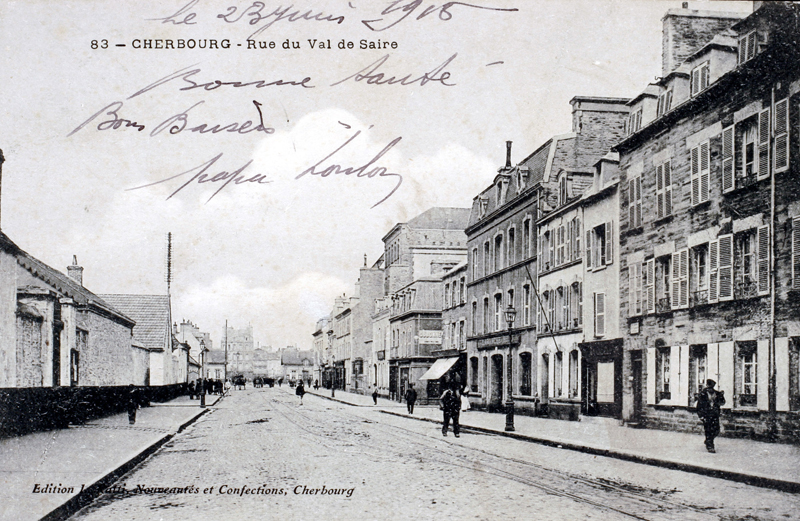 Le 23 juin 1915
83 – CHERBOURG - Rue du Val de Saire
Bonne santé
Bons Baisers
papa
Edition Nouveautés et Confections, Cherbourg